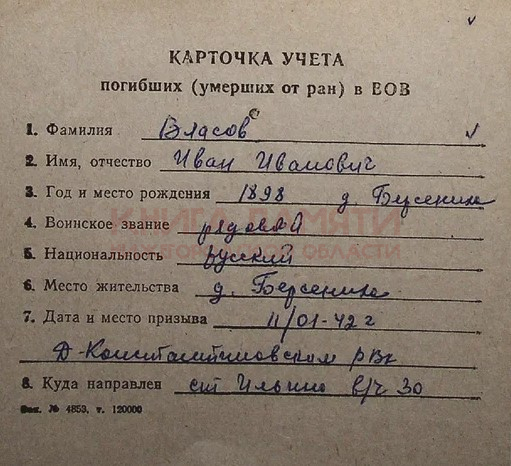 КАРТОЧКА УЧЕТА
погибших (умерших от ран) в ВОВ
1. Фамилия Власов
2. Имя, отчество Иван Иванович
3. Год и место рождения 1898 д. Берсениха
4. Воинское звание рядовой
КНИГА ПАМЯТИ
НИЖЕГОРОДСКОЙ ОБЛАСТИ
5. Национальность русский
6. Место жительства д. Берсениха
7. Дата и место призыва 11/01-42 г
Д-Константиновским рвк
8. Куда направлен ст Ильино в/ч 30
Зак. № 4853, т. 120000